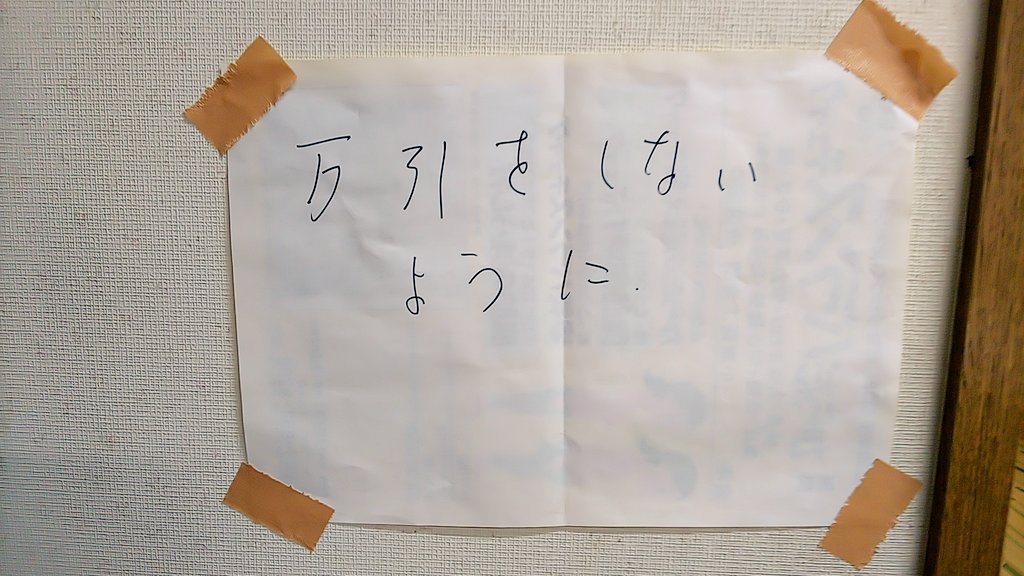 万引をしない
ように.